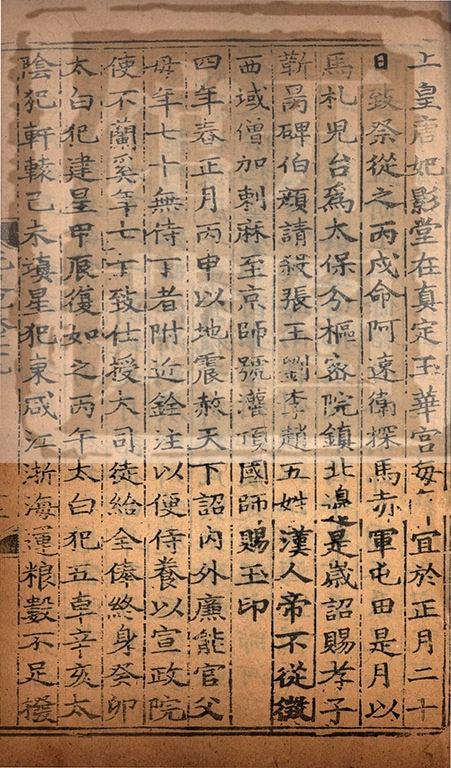 上皇唐妃影堂在真定玉華宮每年宜於正月二十
日致祭從之丙戌命阿速衛探馬赤軍屯田是月以
馬札兒台爲太保分樞密院鎮北邊是歲詔賜孝子
靳昺碑伯顏請殺張王劉李趙五姓漢人帝不從徵
西域僧加剌麻至京師號灌頂國師賜玉印
四年春正月丙申以地震赦天下詔內外廉能官父
母年七十無侍丁者附近銓注以便侍養以宣政院
使不蘭奚年七丁致仕授大司徒給全俸終身癸卯
太白犯建星甲辰復如之丙午太白犯五車辛亥太
陰犯軒轅己未填星犯東咸江浙海運粮數不足撥